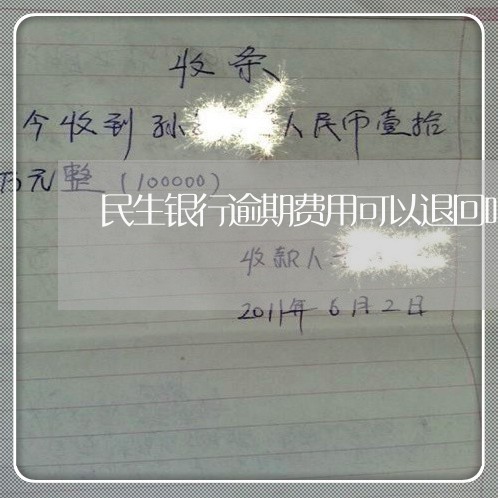 收条
今收到孙 人民币壹拾
万元整(100000)
民生银行逾期费用可以退回
收款人
2011年6月2日